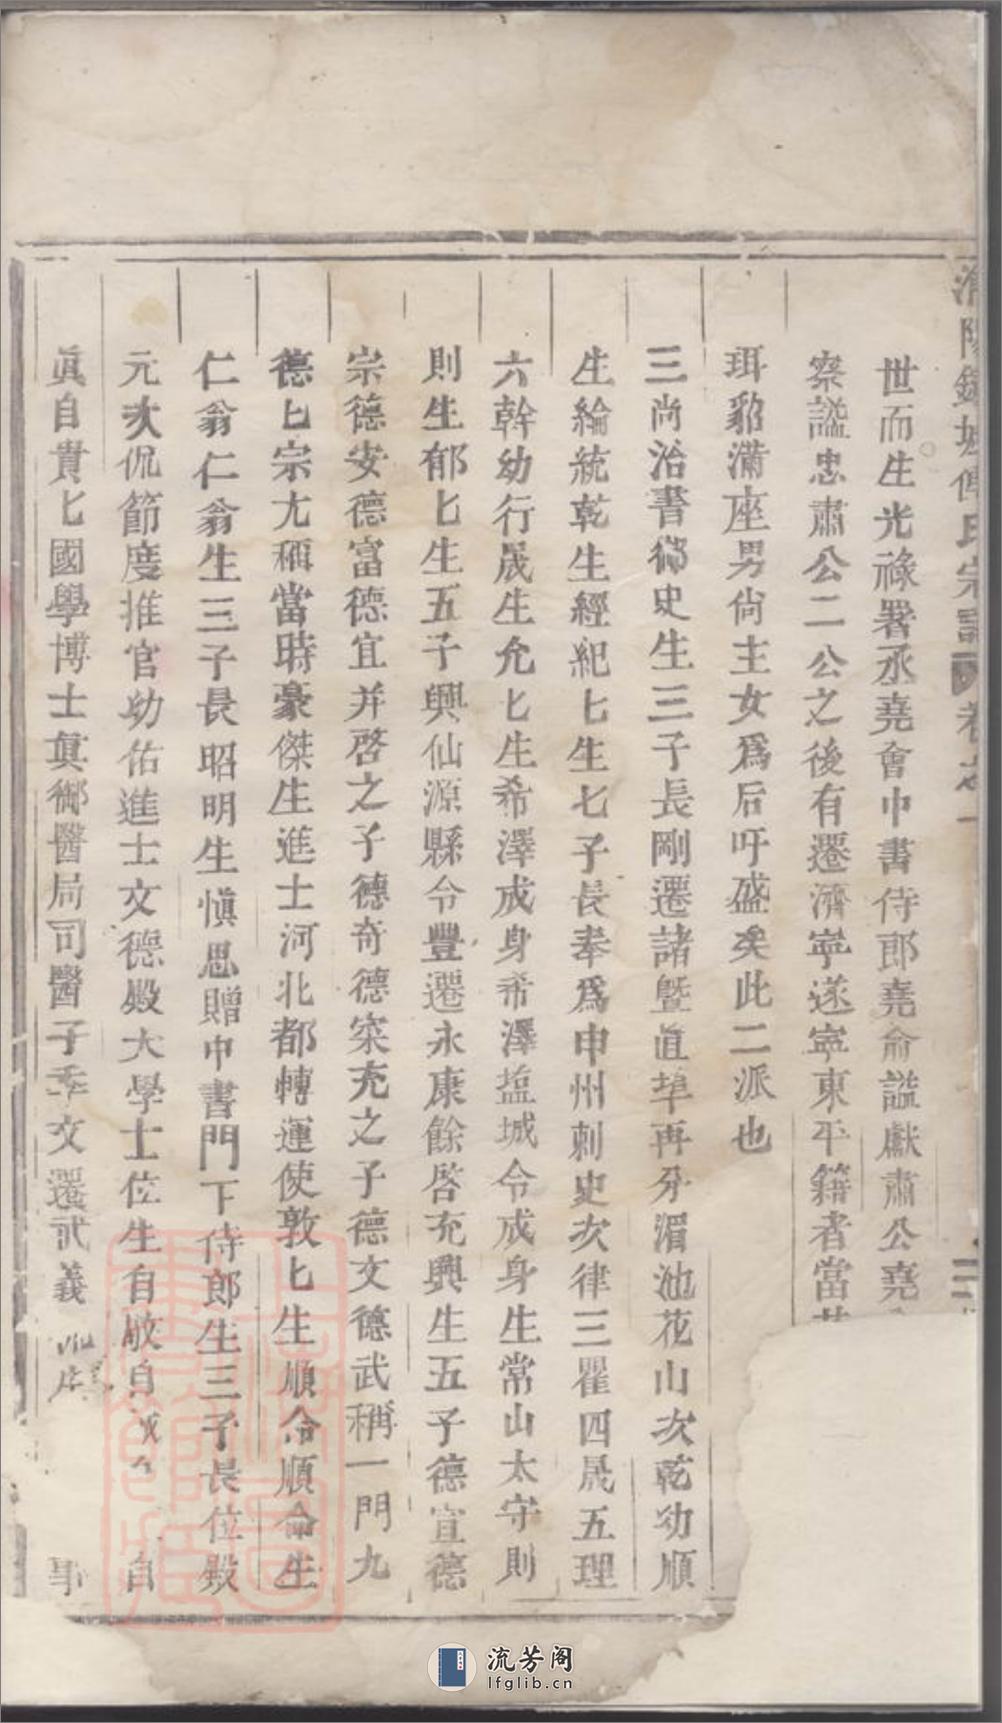 世而生光祿署丞堯會中書侍郎堯俞諡獻肅公堯
察諡忠肅公二公之後有遷濟寧遂寧東平籍者當
珥貂滿座男尙主女爲后吁盛矣此二派也
三尚治書御史生三子長剛遷諸曁直埠再分湄池花山次乾幼順
生綸統乾生經紀匕生七子長奉爲申州刺史次律三瞿四晟五理
六幹幼行晟生允匕生希澤成身希澤塩城令成身生常山太守則
則生郁匕生五子興仙源縣令豐遷永康餘啓充興生五子德宣德
宗德安德富德宜并啓之子德奇德寀充之子德文德武稱一門九
德匕宗尤稱當時豪傑生進士河北都轉運使敦匕生順令順命生
仁翁仁翁生三子長昭明生愼思贈中書門下侍郎生三子長位殿
元次侃節度推官幼佑進士文德殿大學士位生自敬自 自
眞自貴匕國學博士眞鄉醫局司醫子季文選武義 事
宗譜 卷之一
流芳阁
lfglib.cn